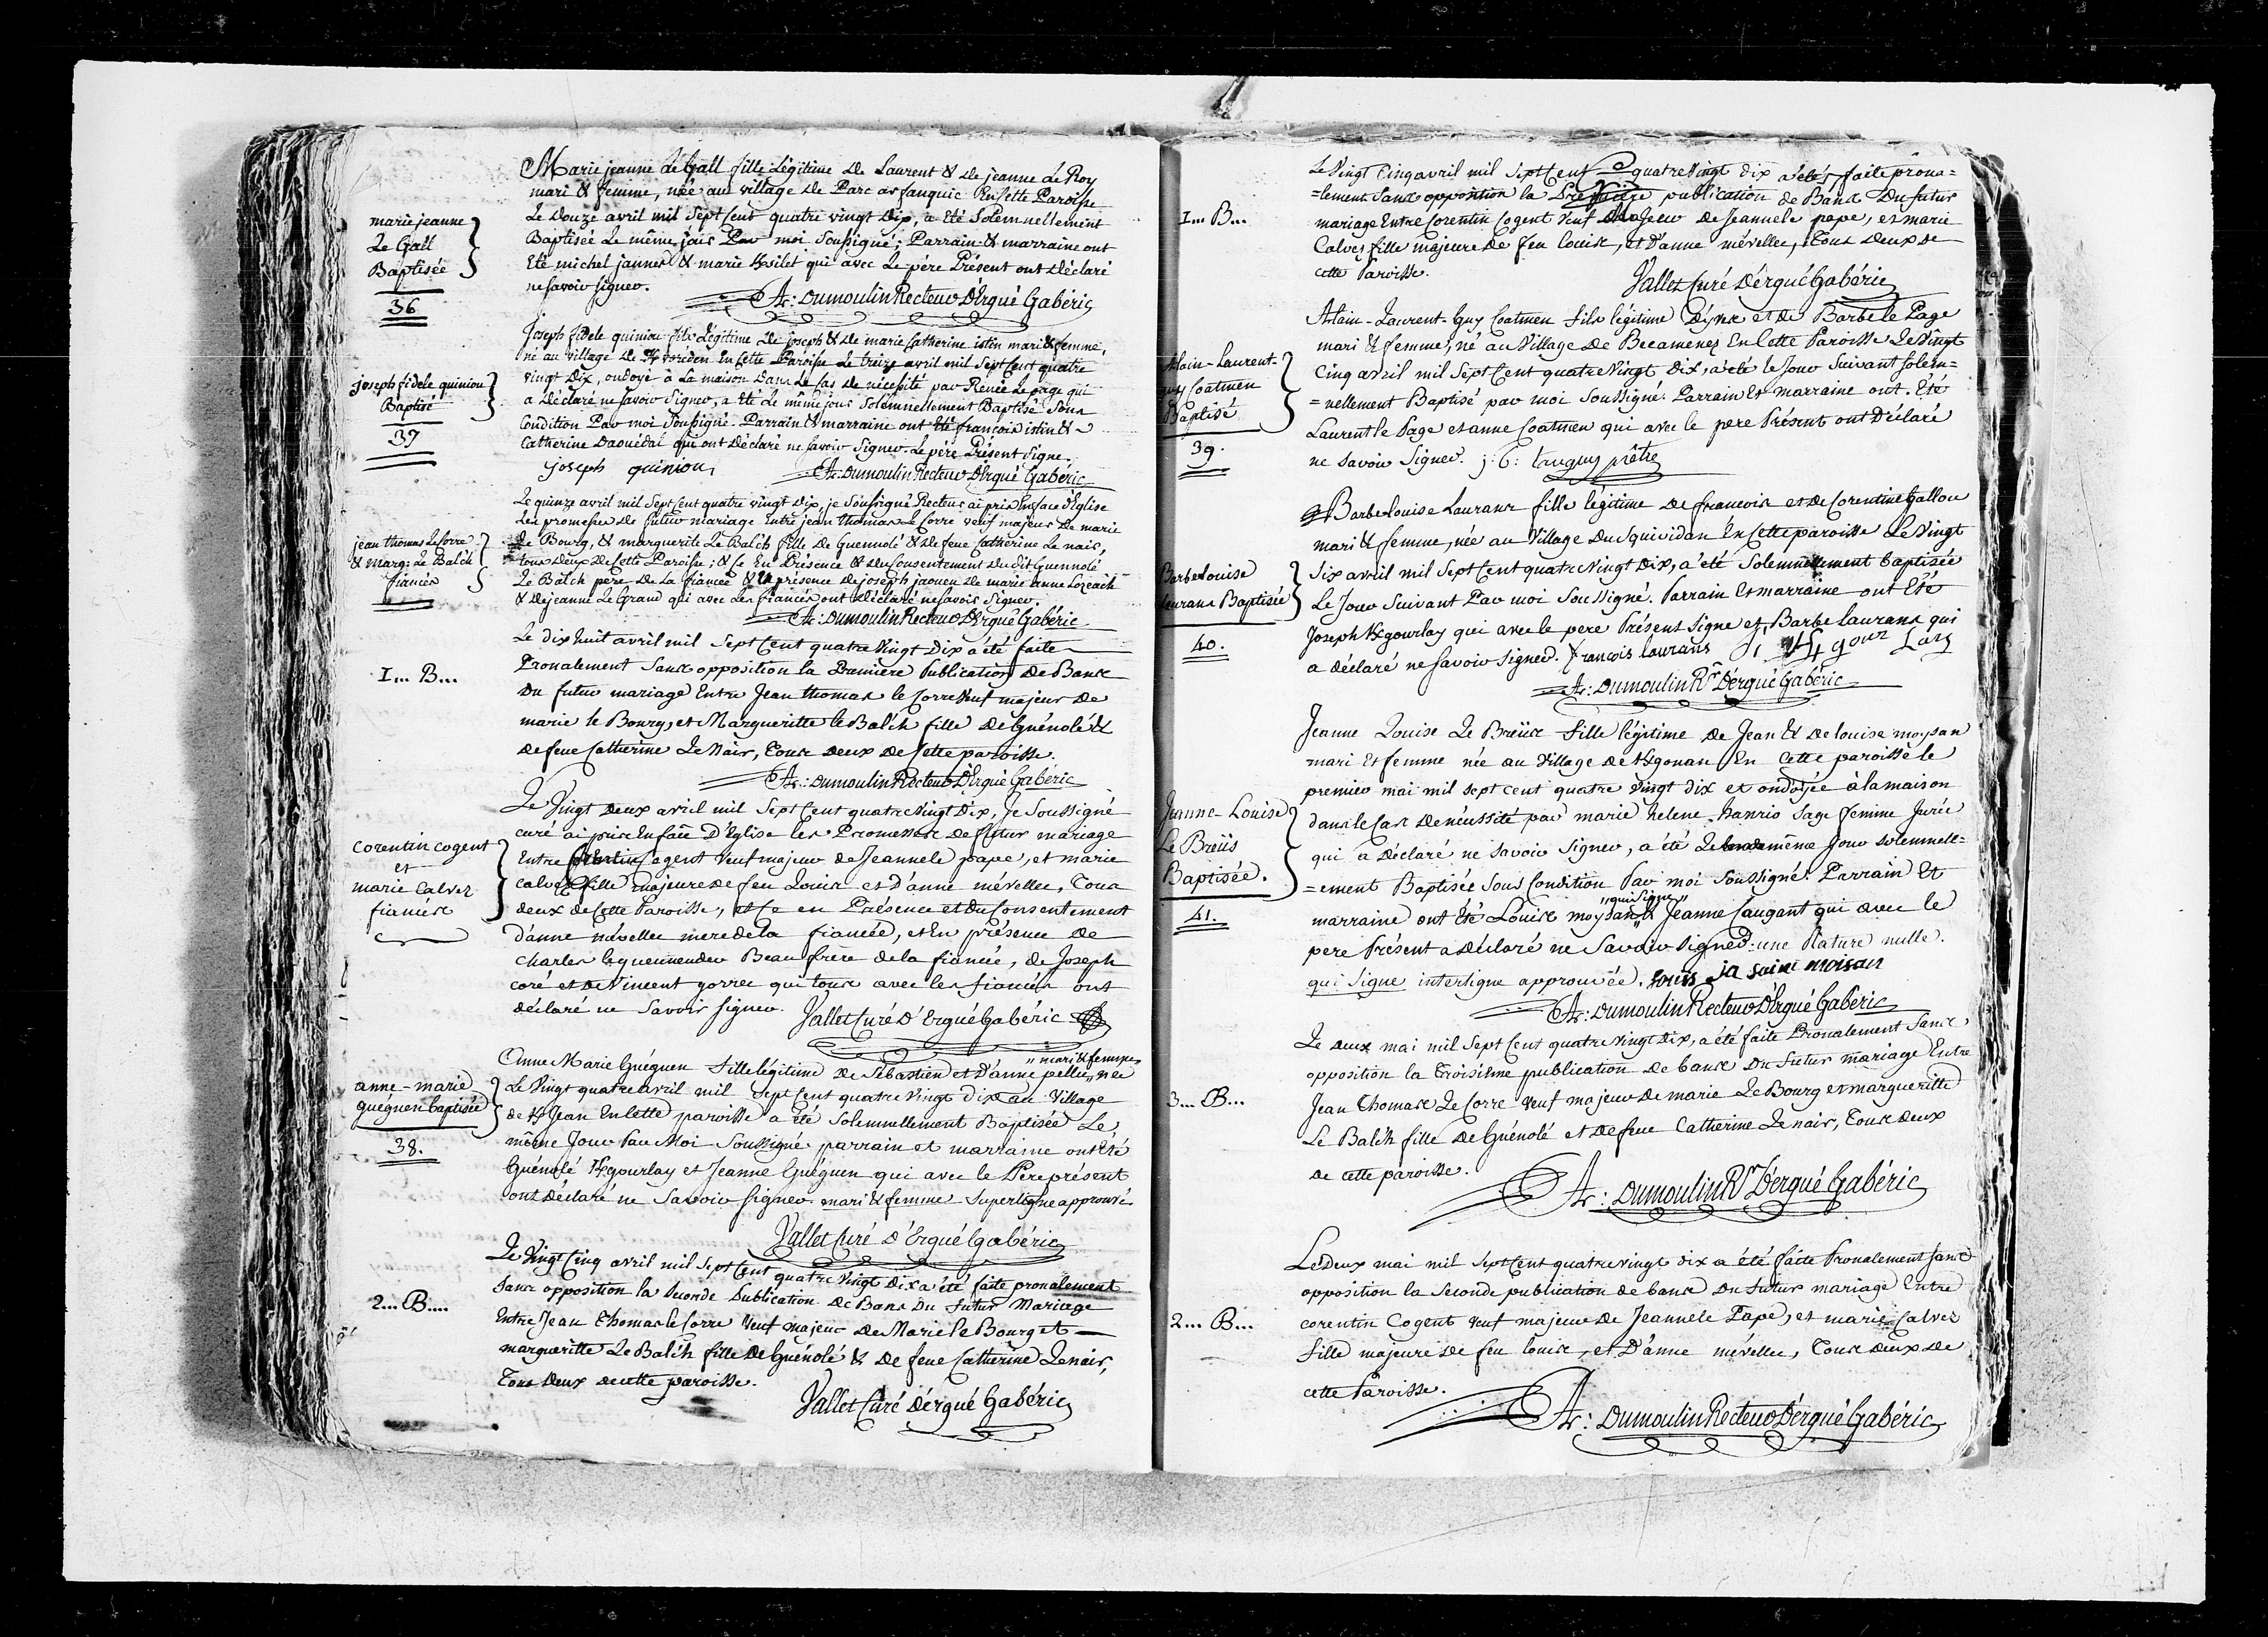 marie jeanne
Le Gall
Baptisée
36
Marie jeanne Le Gall fille Légitime de Laurent & de jeanne Le Roy
mari & femme, née au village de Parc ar fanquic En Cette Paroisse
Le Douze avril mil Sept Cent quatre vingt Dix, a Eté Solemnellement
Baptisée Le même jour Par moi Soussigné; Parrain & marraine ont
Eté michel jannes & marie qui avec Le père Présent ont Déclaré
ne Savoir Signer.
At: Dumoulin Recteur D'Ergué Gabéric
joseph fidele quiniou
Baptisé
37
Joseph fidele quiniou fils Légitime De joseph & De marie Catherine istin mari & femme,
né au village de En Cette Paroisse Le treize avril mil Sept Cent quatre
vingt Dix, ondoyé à La maison Dans Le Cas De nécéssité par Renée Le page qui
a Déclaré ne Savoir Signer, a Eté Le même jour Solemnellement Baptisé Sous
Condition Par moi Soussigné. Parrain & marraine ont Eté françois istin &
Catherine Daouédal qui ont Déclaré ne Savoir Signer. Le père Présent Signe.
joseph quiniou
At: Dumoulin Recteur D'Ergué Gabéric
jean thomas Le Corre
& marg: Le Balch
fiancés
Le quinze avril mil Sept Cent quatre vingt Dix, je Soussigné Recteur ai pris En face d'Eglise
Les promesses De futur mariage Entre jean thomas Le Corre veuf majeur de marie
Le Bourg, & marguerite Le Balch fille De Guennolé & De feue Catherine Le nair,
tous Deux De Cette Paroisse; & Ce En Présence & du Consentement du dit Guennolé
Le Balch pere de La fiancée & En présence De joseph jaouen De marie anne Lozeach
& De jeanne Le Grand qui avec Les fiancés ont Déclaré ne Savoir Signer.
At: Dumoulin Recteur D'Ergué Gabéric
1... B...
Le dix huit avril mil Sept Cent quatre Vingt Dix a été faite
Pronalement Sans opposition la Première Publication De Bans
Du futur mariage Entre Jean thomas le Corre Veuf majeur De
marie le Bourg, et Margueritte le Balch fille De Guénolé &
De feue Catherine Le Nair, Tous deux de Cette paroisse.
At: Dumoulin Recteur D'Ergué Gabéric
corentin cogent
et
marie calvez
fiancés
Le Vingt Deux avril mil Sept Cent quatre Vingt Dix, Je Soussigné
curé ai pris En face D'Eglise les Promesses De futur mariage
Entre Corentin Cogent Veuf majeur de Jeanne le pape, et marie
calvez fille majeure de feu Louis et D'anne mévellec, Tous
deux de Cette Paroisse, et Ce en Présence et du Consentement
d'anne mévellec mere de la fiancée, et En présence de
Charles le quemeneur Beau frère de la fiancée, de Joseph
coré et De Vincent gorrec qui tous avec les fiancés ont
déclaré ne Savoir Signer.
Vallet Curé D'Ergué Gabéric
anne-marie
guéguen baptisée
38.
"mari & femme"
Anne Marie Guéguen fille légitime De Sébastien et D'anne née
Le Vingt quatre Avril mil Sept Cent quatre Vingt Dix au Village
de Jean En Cette paroisse a été Solemnellement Baptisée Le
même Jour Par Moi Soussigné parrain et marraine ont Eté
Guénolé gourlay et Jeanne Guéguen qui avec le Père présent
ont Déclaré ne Savoir Signer mari & femme approuvé.
Vallet Curé D'Ergué Gabéric
2... B....
Le Vingt Cinq avril mil Sept Cent quatre Vingt Dix a été faite pronalement
Sans opposition la Seconde Publication De Bans Du Futur Mariage
Entre Jean Thomas le Corre Veuf majeur De Marie le Bourg et
margueritte Le Balch fille De Guénolé & De feue Catherine Le nair,
Tous Deux de cette paroisse.
Vallet Curé D'ergué Gabéric
1... B...
Le Vingt Cinq avril mil Sept Cent quatre Vingt dix a été faite prona=
=lement Sans opposition la Première publication de Bans Du futur
mariage Entre Corentin Cogent Veuf de Jeanne le pape, et marie
Calvez fille majeure De feu Louis, et D'anne mévellec, Tous Deux de
cette Paroisse.
Vallet Curé D'érgué Gabéric
Alain-Laurent-
guy Coatmen
Baptisé
39.
Alain-Laurent-Guy Coatmen fils légitime D'yves et de Barbe le Page
mari & femme, né au Village De Becamenez En Cette Paroisse Le Vingt
Cinq avril mil Sept Cent quatre Vingt Dix, a été le Jour Suivant Solem=
=nellement Baptisé par moi Soussigné. Parrain Et marraine ont Eté
Laurent le Page et anne Coatmen qui avec le pere Présent ont Déclaré
ne Savoir Signer. j: G: tanguy prêtre
Barbe Louise
Laurans Baptisée
40.
Barbe Louise Laurans fille légitime de francois et de Corentine Gallou
mari & femme, née au Village du Squividan En Cette paroisse Le Vingt
Six avril mil Sept Cent quatre Vingt Dix, a été Solemnellement baptisée
Le Jour Suivant Par moi Soussigné. Parrain Et marraine ont Eté
Joseph gourlay qui avec le pere Présent Signe et Barbe Laurans qui
a déclaré ne Savoir Signer. François Laurans
At: Dumoulin Rr D'ergué Gabéric
Jeanne-Louise
Le Breüs
Baptisée.
41.
Jeanne Louise Le Breüs fille légitime de Jean & de Louise moysan
mari Et femme née au Village de gonan En Cette paroisse le
premier mai mil Sept cent quatre Vingt dix et ondoyée à la maison
dans le Cas De nécessité par marie helene hanrio Sage femme Jurée
qui a Déclaré ne Savoir Signer, a été Le même Jour Solemnell=
=ement Baptisée Sous Condition Par moi Soussigné. Parrain Et
"qui Signe"
marraine ont Eté Louis moysan & Jeanne Caugant qui avec le
pere Présent a Déclaré ne Savoir Signer: une Rature nulle.
qui Signe interligne approuvée. moisan
At: Dumoulin Recteur D'Ergué Gabéric
3... B...
Le deux mai mil Sept Cent quatre Vingt Dix, a été faite Pronalement Sans
opposition la Troisième publication de bans Du Futur mariage Entre
Jean Thomas Le Corre Veuf majeur de marie Le Bourg et margueritte
Le Balch fille De Guénolé et De feue Catherine Le nair, Tous deux
de cette paroisse.
At: Dumoulin Rr D'ergué Gabéric
2... B...
Le Deux mai mil Sept Cent quatre Vingt dix a été faite Pronalement Sans
opposition la Seconde publication de bans Du Futur mariage Entre
corentin Cogent Veuf majeur De Jeanne le Pape, et marie Calvez
fille majeure de feu Louis, et D'anne mévellec, Tous deux de
cette Paroisse.
At: Dumoulin Recteur D'ergué Gabéric